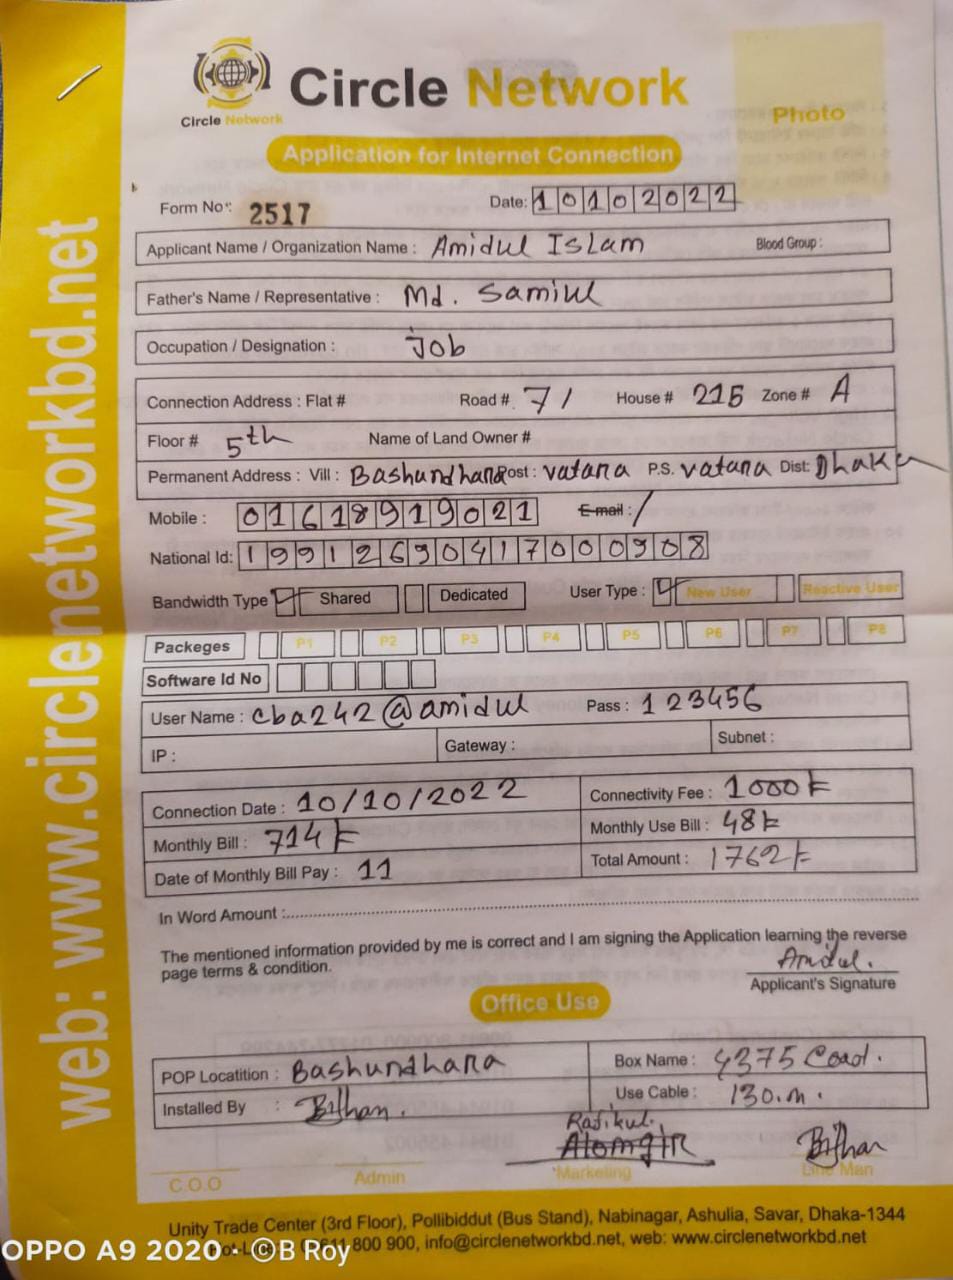 Circle Network
Circle Network
Photo
Application for Internet Connection
Form No: 2517
Date: 10102022
Applicant Name / Organization Name : Amidul Islam Blood Group :
Father's Name / Representative : Md. Samiul
Occupation / Designation : Job
Connection Address : Flat # Road # 7/ House # 215 Zone # A
Floor # 5th Name of Land Owner #
Permanent Address : Vill : Bashundhara Post : vatara P.S. vatara Dist: Dhaka
Mobile : 01618919021 E-mail : /
National Id: 19912690417000908
Bandwidth Type Shared Dedicated User Type : New User Reactive User
Packeges P1 P2 P3 P4 P5 P6 P7 P8
Software Id No
User Name : cba242@amidul Pass : 123456
IP : Gateway : Subnet :
Connection Date : 10/10/2022 Connectivity Fee : 1000
Monthly Bill : 714 Monthly Use Bill : 48
Date of Monthly Bill Pay : 11 Total Amount : 1762
In Word Amount :
The mentioned information provided by me is correct and I am signing the Application learning the reverse
page terms & condition.
Amidul.
Applicant's Signature
Office Use
POP Locatition : Bashundhara Box Name : 4375
Installed By : Use Cable : 130.m.
Rafikul.
C.O.O Admin Marketing Line Man
Unity Trade Center (3rd Floor), Pollibiddut (Bus Stand), Nabinagar, Ashulia, Savar, Dhaka-1344
800 900, info@circlenetworkbd.net, web: www.circlenetworkbd.net
web: www.circlenetworkbd.net
OPPO A9 2020 · ©B Roy